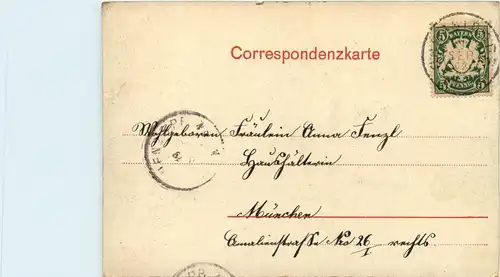 Correspondenzkarte
5 BAYERN 5
5 PFENNIG 5
Wohlgeboren Fräulein Anna Fenzl
Haushälterin
München
Amalienstraße No 26/I rechts.